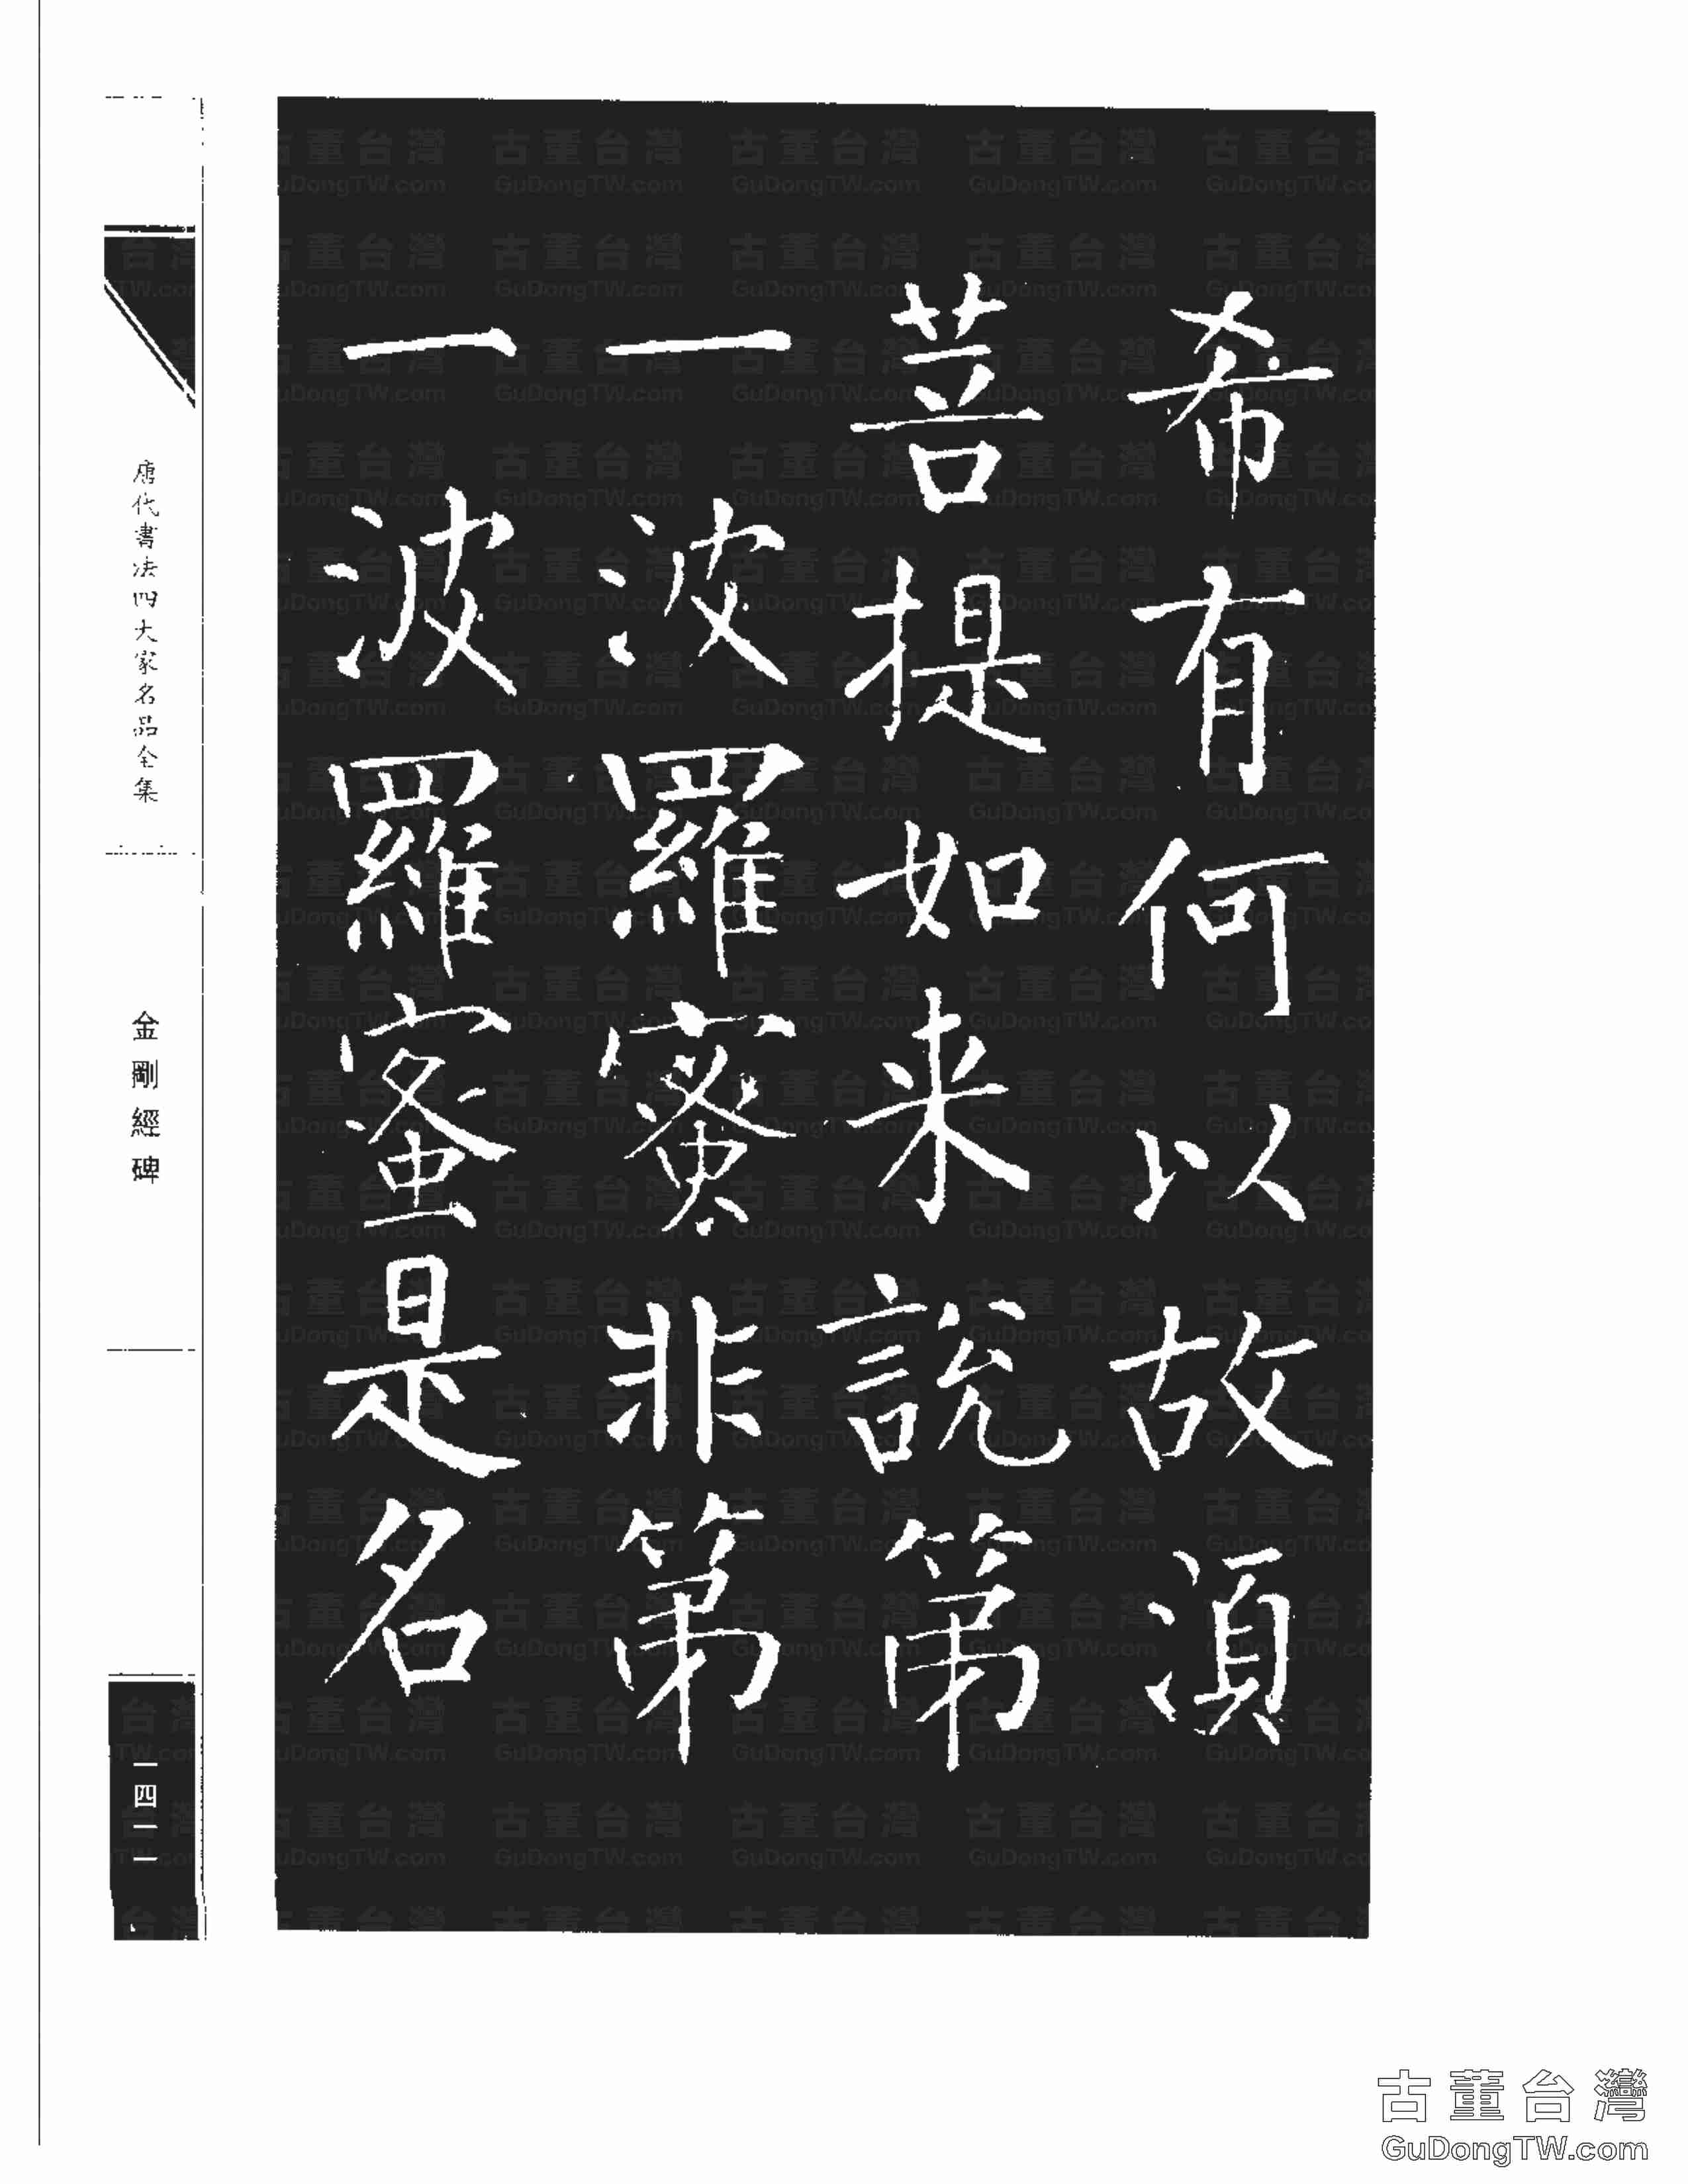 希有何以故湏
菩提如来說第
一波羅蜜非第
一波羅蜜是名
唐代書法四大家名品全集
金剛經碑
一四一一
古董台灣
GuDongTW.com